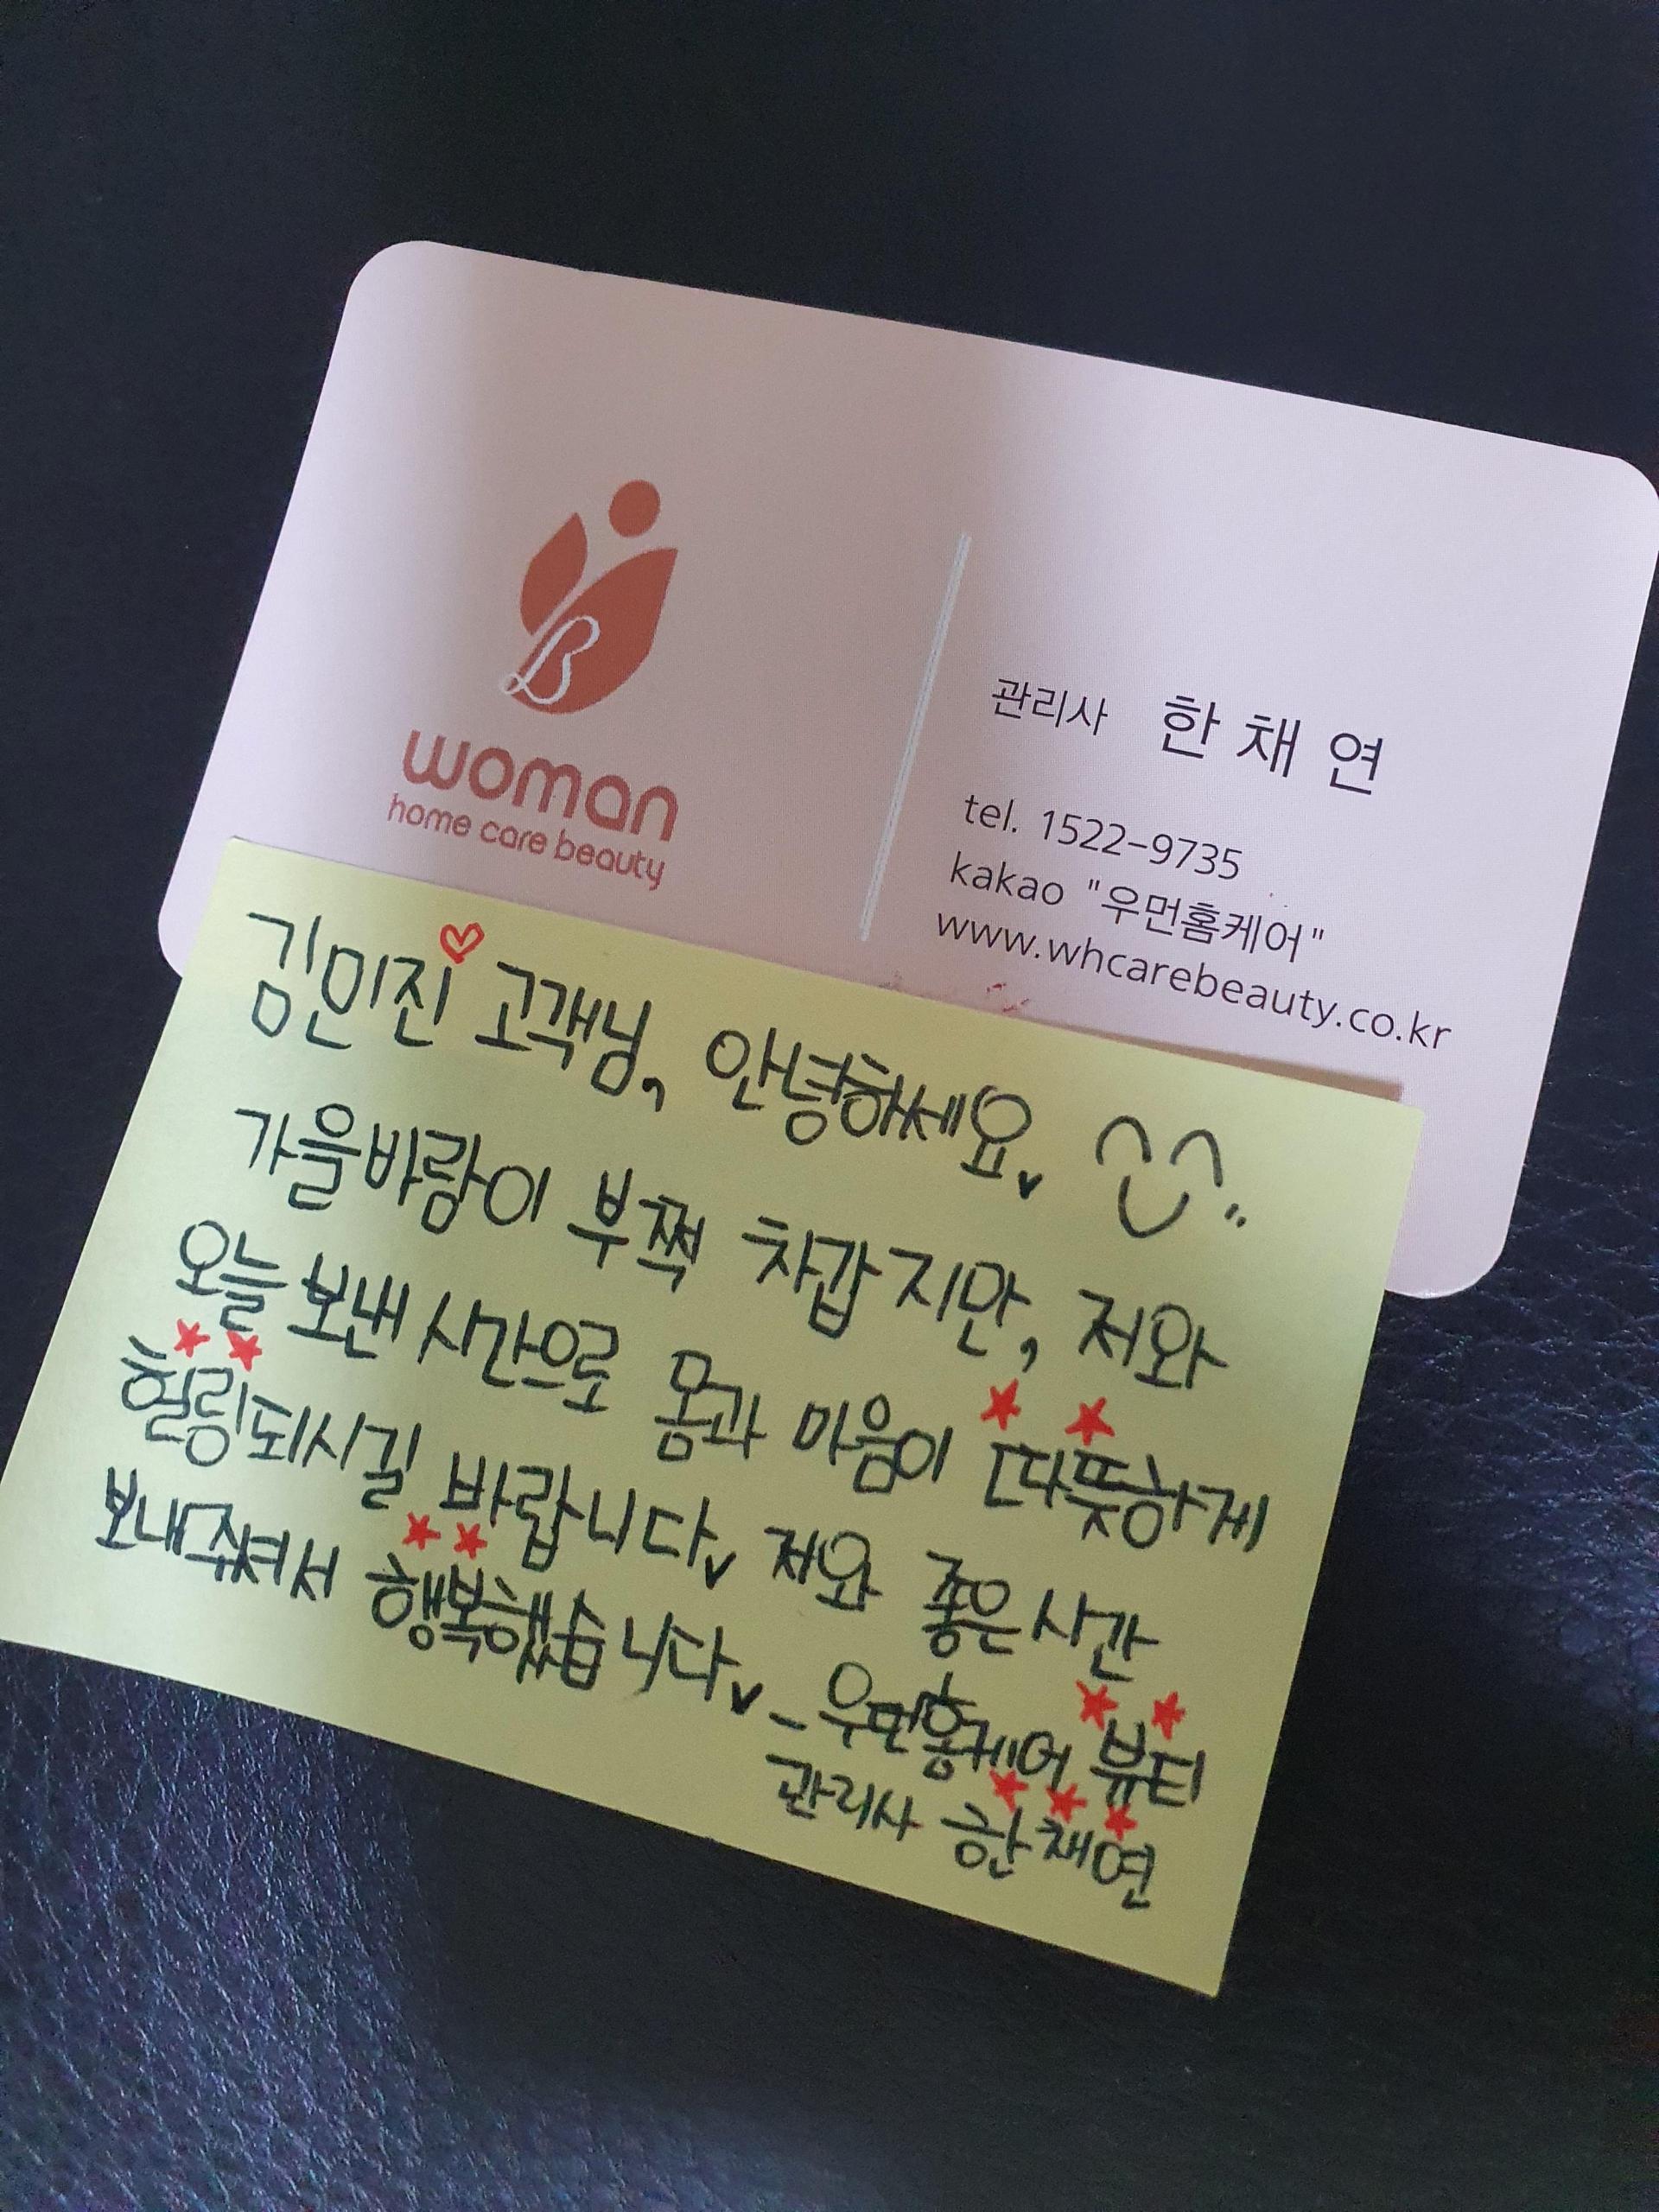 B
woman
home care beauty
관리사 한채연
tel. 1522-9735
kakao "우먼홈케어"
www.whcarebeauty.co.kr
김민진♡ 고객님, 안녕하세요.
가을바람이 부쩍 차갑지만, 저와
오늘 보낸 시간으로 몸과 마음이 따뜻하게
힐링되시길 바랍니다. 저와 좋은 시간
보내주셔서 행복했습니다.
- 우먼홈케어 뷰티
관리사 한채연